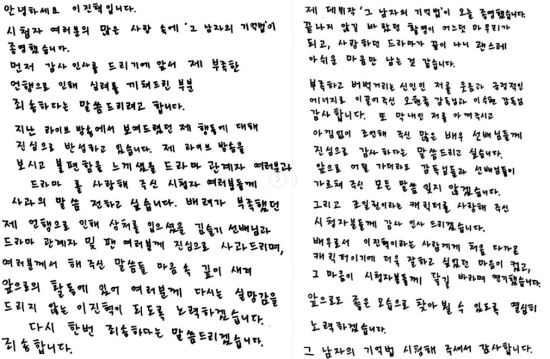 안녕하세요 이진혁입니다.
시청자 여러분의 많은 사랑 속에 '그 남자의 기억법'이
종영했습니다.
먼저 감사 인사를 드리기에 앞서 제 부족한
언행으로 인해 심려를 끼쳐드린 부분
죄송하다는 말씀드리려고 합니다.
지난 라이브 방송에서 보여드렸던 제 행동에 대해
진심으로 반성하고 있습니다. 제 라이브 방송을
보시고 불편함을 느끼셨을 드라마 관계자 여러분과
드라마를 사랑해 주신 시청자 여러분들께
사과의 말씀 전하고 싶습니다. 배려가 부족했던
제 언행으로 인해 상처를 입으셨을 김슬기 선배님과
드라마 관계자 및 팬 여러분께 진심으로 사과드리며,
여러분께서 해 주신 말씀들 마음 속 깊이 새겨
앞으로의 활동에 있어 여러분께 다시는 실망감을
드리지 않는 이진혁이 되도록 노력하겠습니다.
다시 한번 죄송하다는 말씀드리겠습니다.
죄송합니다.
제 데뷔작 '그 남자의 기억법'이 오늘 종영했습니다.
끝나지 않길 바랐던 촬영이 어느덧 마무리가
되고, 사랑하던 드라마가 끝이 나니 괜스레
아쉬운 마음만 남는 것 같습니다.
부족하고 버벅거리는 신인인 저를 웃음과 긍정적인
에너지로 이끌어주신 오현종 감독님과 이수현 감독님
감사합니다. 또 막내인 저를 아껴주시고
아낌없이 조언해 주신 많은 배우 선배님들께
진심으로 감사하다는 말씀드리고 싶습니다.
앞으로 어딜 가더라도 감독님들과 선배님들이
가르쳐 주신 모든 말씀 잊지 않겠습니다.
그리고 조일권이라는 캐릭터를 사랑해 주신
시청자분들께 감사 인사 드리겠습니다.
배우로서 이진혁이라는 사람에게 처음 다가온
캐릭터이기에 더욱 잘하고 싶었던 마음이 컸고,
그 마음이 시청자분들께 닿길 바라며 연기했습니다.
앞으로도 좋은 모습으로 찾아 뵐 수 있도록 열심히
노력하겠습니다.
그 남자의 기억법 시청해 주셔서 감사합니다.